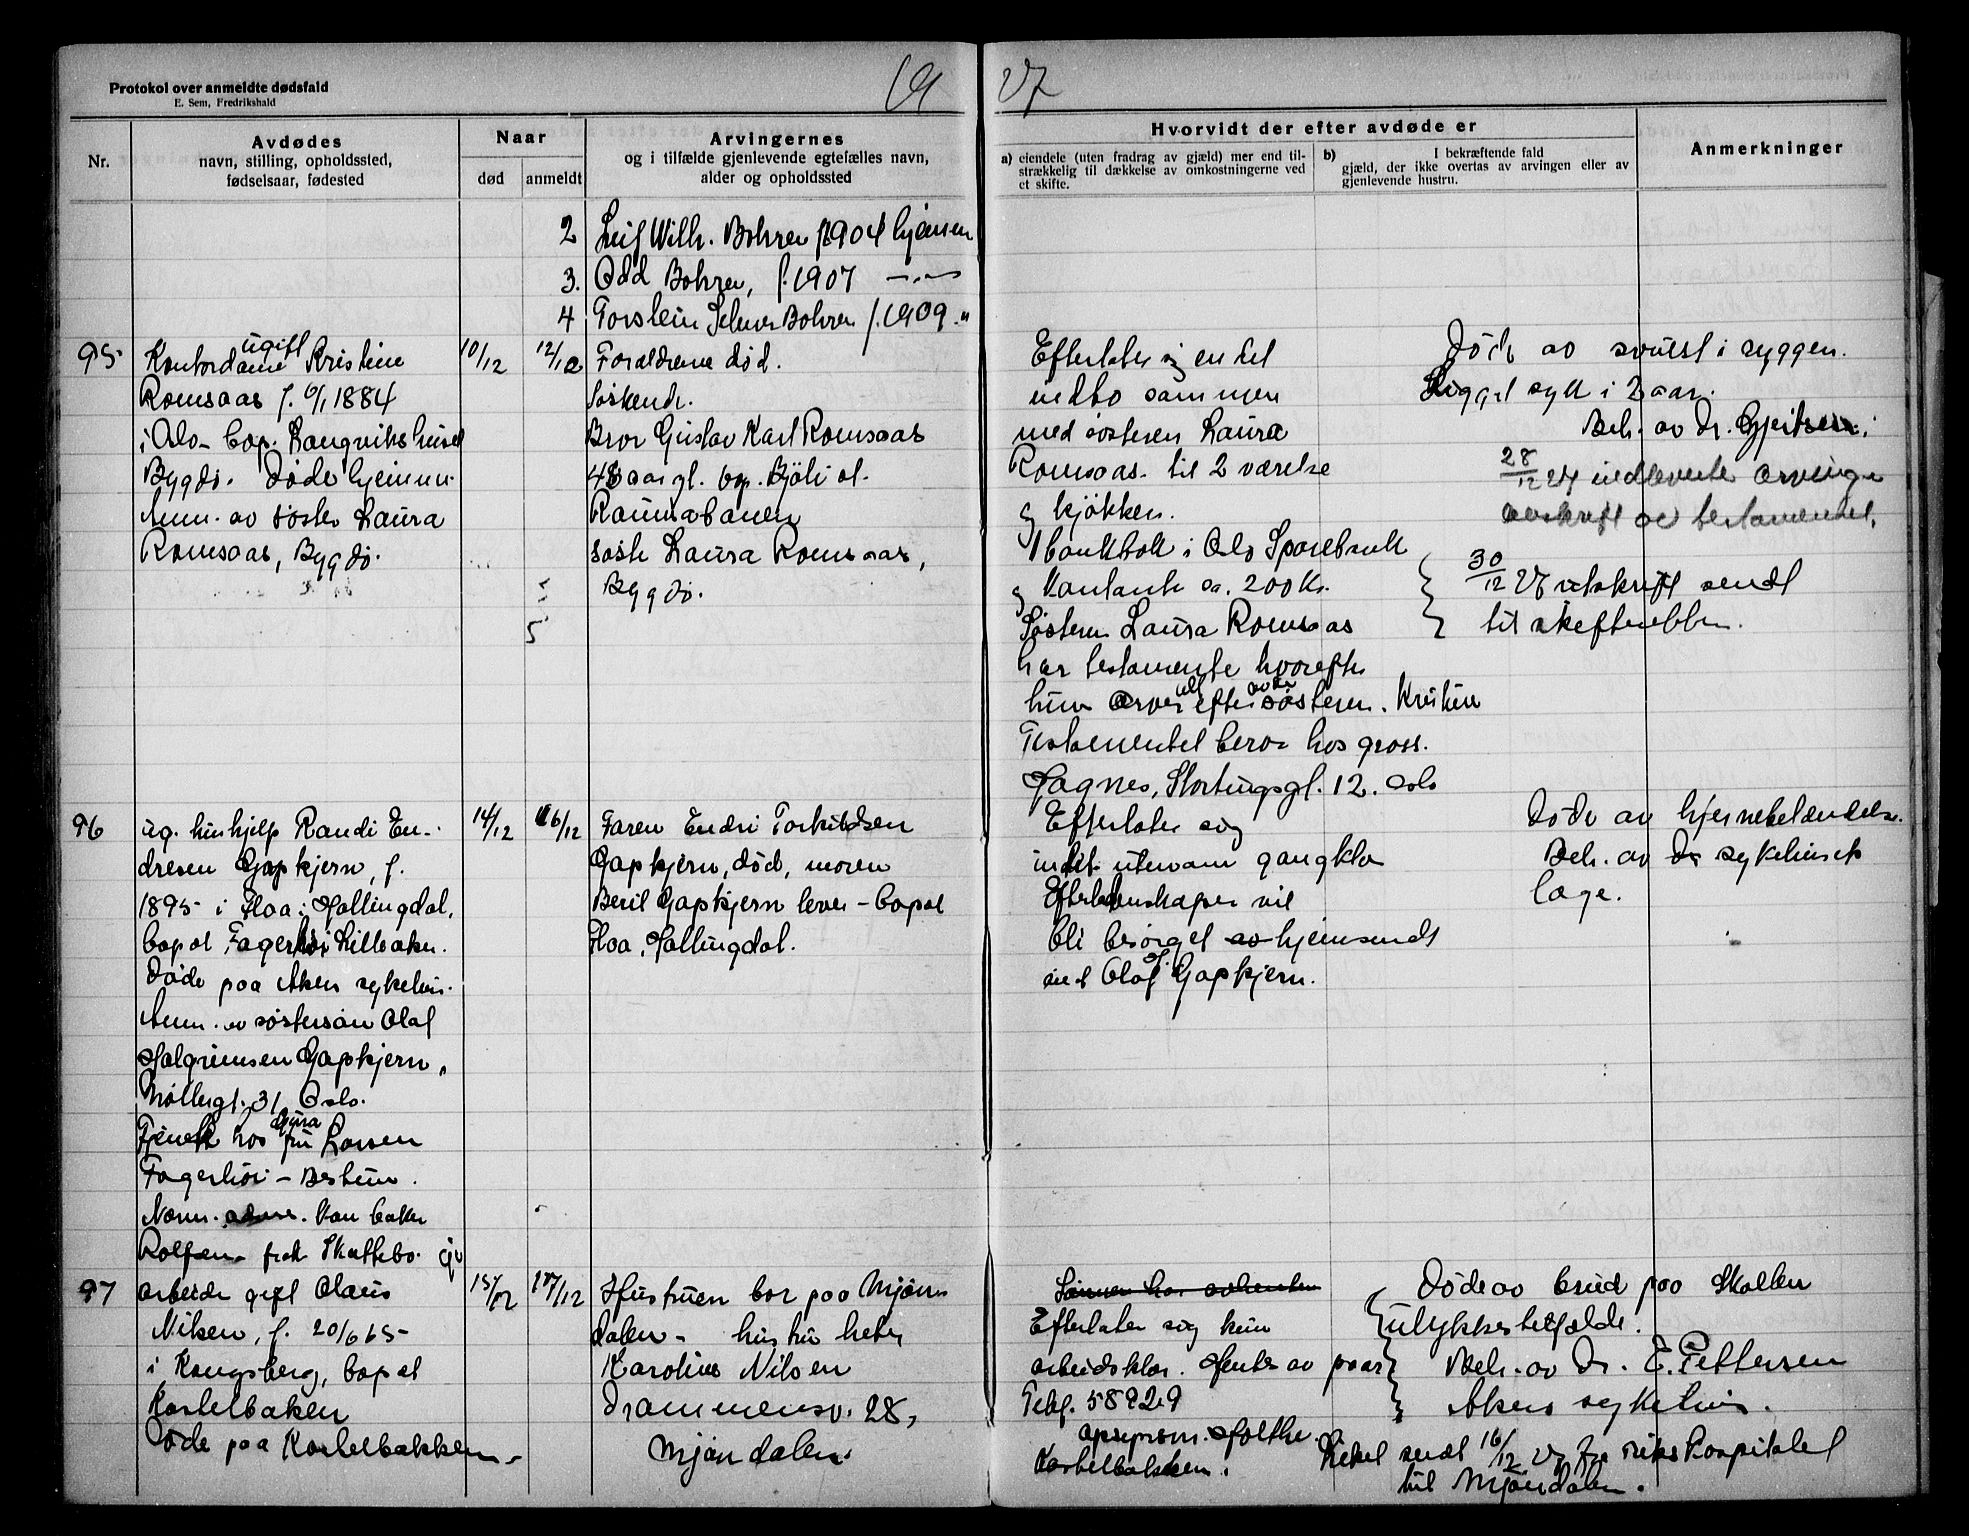 Protokol over anmeldte dødsfald
E. Sem, Fredrikshald
19 27
Nr.
Avdødes
navn, stilling, opholdssted,
fødselsaar, fødested
Naar
død
anmeldt
Arvingernes
og i tilfælde gjenlevende egtefælles navn,
alder og opholdssted
Hvorvidt der efter avdøde er
a) eiendele (uten fradrag av gjæld) mer end til-
strækkelig til dækkelse av omkostningerne ved
et skifte.
b) I bekræftende fald
gjæld, der ikke overtas av arvingen eller av
gjenlevende hustru.
Anmerkninger
2 Leif Wilh. Bohren f. 1904 hjemme
3. Odd Bohren, f. 1907 —〃—
4 Torstein Bohren f. 1909 〃
95 Kontordame ugift Kristine
Romsaas f. 6/1 1884
i Oslo - bop. Langvikshuset
Bygdø. Døde hjemme.
Anm. av søster Laura
Romsaas, Bygdø.
10/12
12/12
Forældrene død.
Søskende.
Bror Gustav Karl Romsaas
48 aar gl. bop. Bjøli st.
Raumabanen
søster Laura Romsaas,
Bygdø.
5
Efterlater sig en del
indbo sammen
med søsteren Laura
Romsaas til 2 værelse
og kjøkken.
1 bankbok i Oslo Sparebank
og kontante ca. 200 Kr.
Søsteren Laura Romsaas
har testamente hvorefter
hun arver alt efter søsteren Kristine
Testamentet beror hos gross.
Hagnes, Stortingsgt. 12. Oslo
Døde av svulst i ryggen.
Ligget syk i 2 aar.
Beh. av Dr. Gjertsen.
28/12 27 indleverte arvinge
avskrift av testamentet.
30/12 27 utskrift sendt
til skifteretten.
96 ug. hushjelp Randi En-
dresen Gapkjern, f.
1895 i Floa i Hallingdal,
bopæl Fagerhøi Lilleaker.
Døde paa Aker sykehus.
Anm. av søstersøn Olaf
Halgrimsen Gapkjern,
Møllergt. 31 Oslo.
Tjent hos fru Larsen
Fagerhøi - Bestum.
14/12
16/12
Faren Endre Torkildsen
Gapkjern, død, moren
Beril Gapkjern lever - bopæl
Floa, Hallingdal.
Efterlater sig
intet utenom gangklær
Efterladenskaper vil
bli besørget hjemsendt
ved Olaf H. Gapkjern.
Døde av hjernebetændelse.
Beh. av sykehusets
læge.
97 arbeider gift Claus
Nilsen, f. 20/6 65
i Kongsberg, bopæl
Kastelbakken
Døde paa Kastelbakken
15/12
17/12
Hustruen bor paa Mjøn
dalen - hustru heter
Karoline Nilsen
Drammensv. 28,
Mjøndalen.
Sønnen har avhentet
Efterlater sig kun
arbeidsklær. Hentes av paar
Telef. 58929
opsynsm. Holthe
Kastelbakken.
Døde av brud paa Skallen
ulykkestilfælde.
Beh. av Dr. E. Pettersen
Akers sykehus.
Liket sendt 16/12 27 fra rikshospitalet
til Mjøndalen.